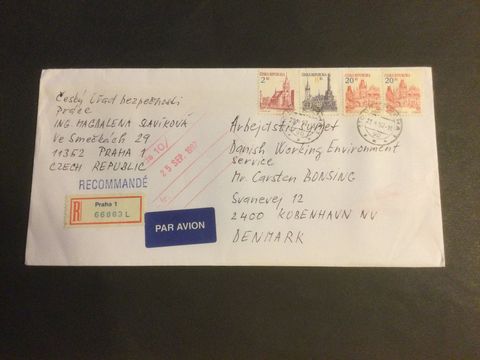 ČESKÁ REPUBLIKA
2 Kč
ČESKÁ REPUBLIKA
ČESKÁ REPUBLIKA
20 Kč
ČESKÁ REPUBLIKA
20 Kč
Český úřad bezpečnosti
práce
ING MAGDALENA SLAVÍKOVÁ
Ve Smečkách 29
11352 PRAHA 1
CZECH REPUBLIC
RECOMMANDÉ
R
Praha 1
66003 L
10/
25 SEP. 1997
PAR AVION
Arbejdstilsynet
Danish Working Environment
Service
Mr. Carsten BONSING
Svanevej 12
2400 KOBENHAVN NV
DENMARK